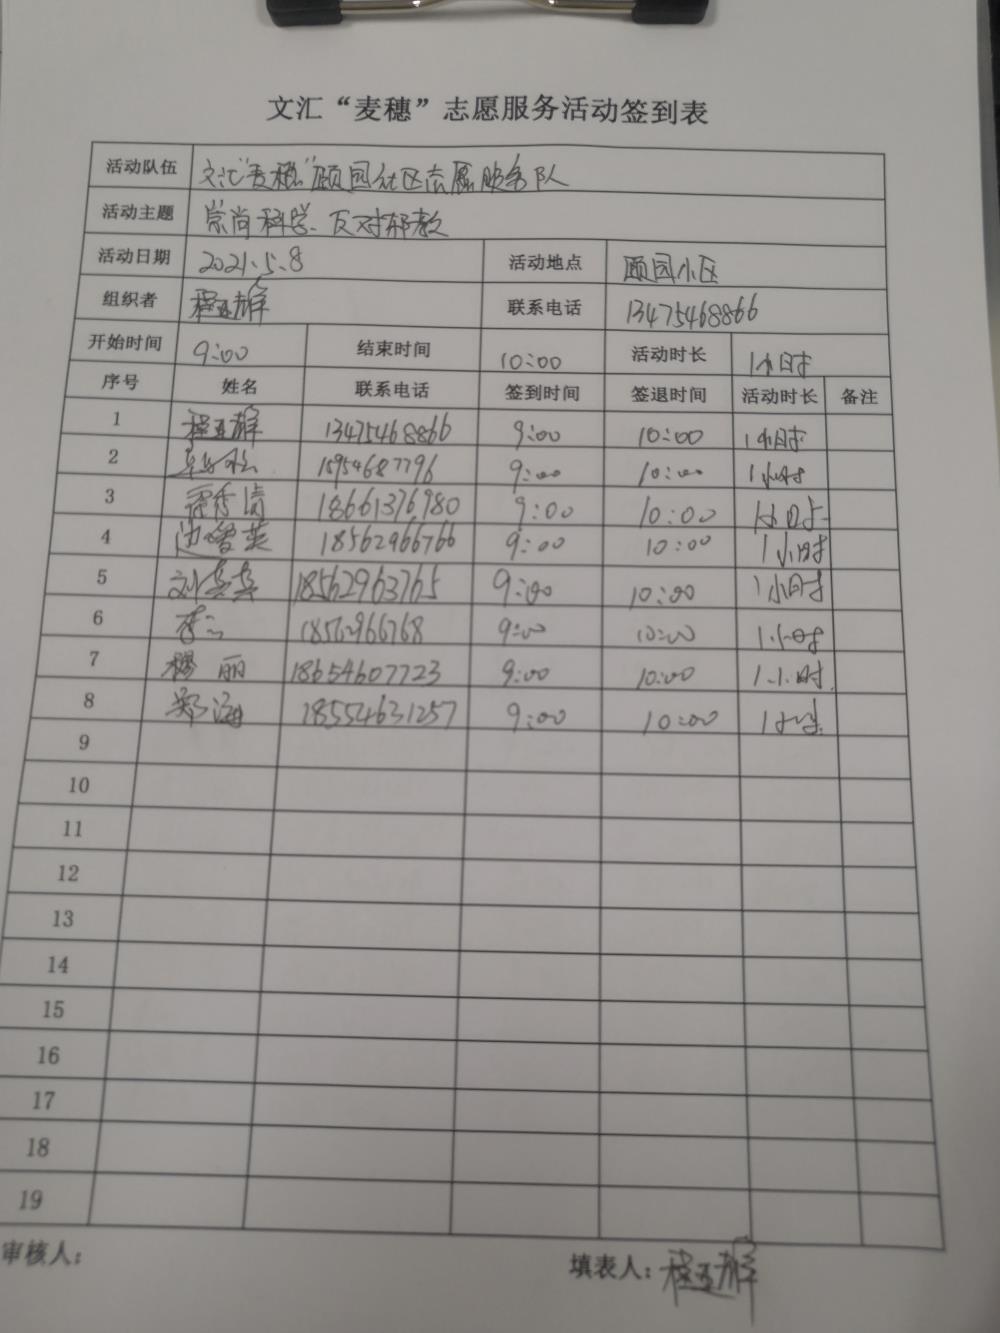 文汇“麦穗”志愿服务活动签到表
活动队伍 文汇“麦穗”颐园社区志愿服务队
活动主题 崇尚科学、反对邪教
活动日期 2021.5.8 活动地点 颐园小区
组织者 联系电话 13475468866
开始时间 9:00 结束时间 10:00 活动时长 1小时
序号 姓名 联系电话 签到时间 签退时间 活动时长 备注
1 13475468866 9:00 10:00 1小时
2 15954687796 9:00 10:00 1小时
3 18661376980 9:00 10:00 1小时
4 18562966766 9:00 10:00 1小时
5 刘真真 18562963765 9:00 10:00 1小时
6 18562966768 9:00 10:00 1小时
7 穆丽 18654607723 9:00 10:00 1小时
8 郑海 18554631257 9:00 10:00 1小时
9
10
11
12
13
14
15
16
17
18
19
审核人： 填表人：